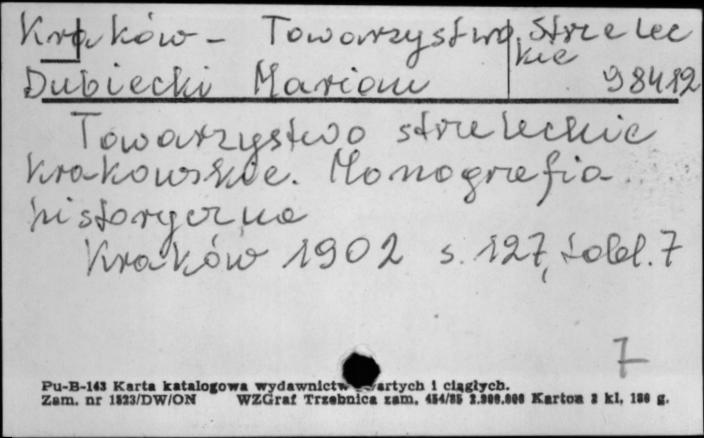 Kraków - Towarzystwo Strzelec
kie
Dubiecki Marian 98412
Towarzystwo strzeleckie
krakowskie. Monografia
historyczna
Kraków 1902 s. 127, tabl. 7
7
Pu-B-143 Karta katalogowa wydawnictw zwartych i ciągłych.
Zam. nr 1523/DW/ON WZGraf Trzebnica zam. 454/85 2.900.000 Karton 3 kl. 180 g.